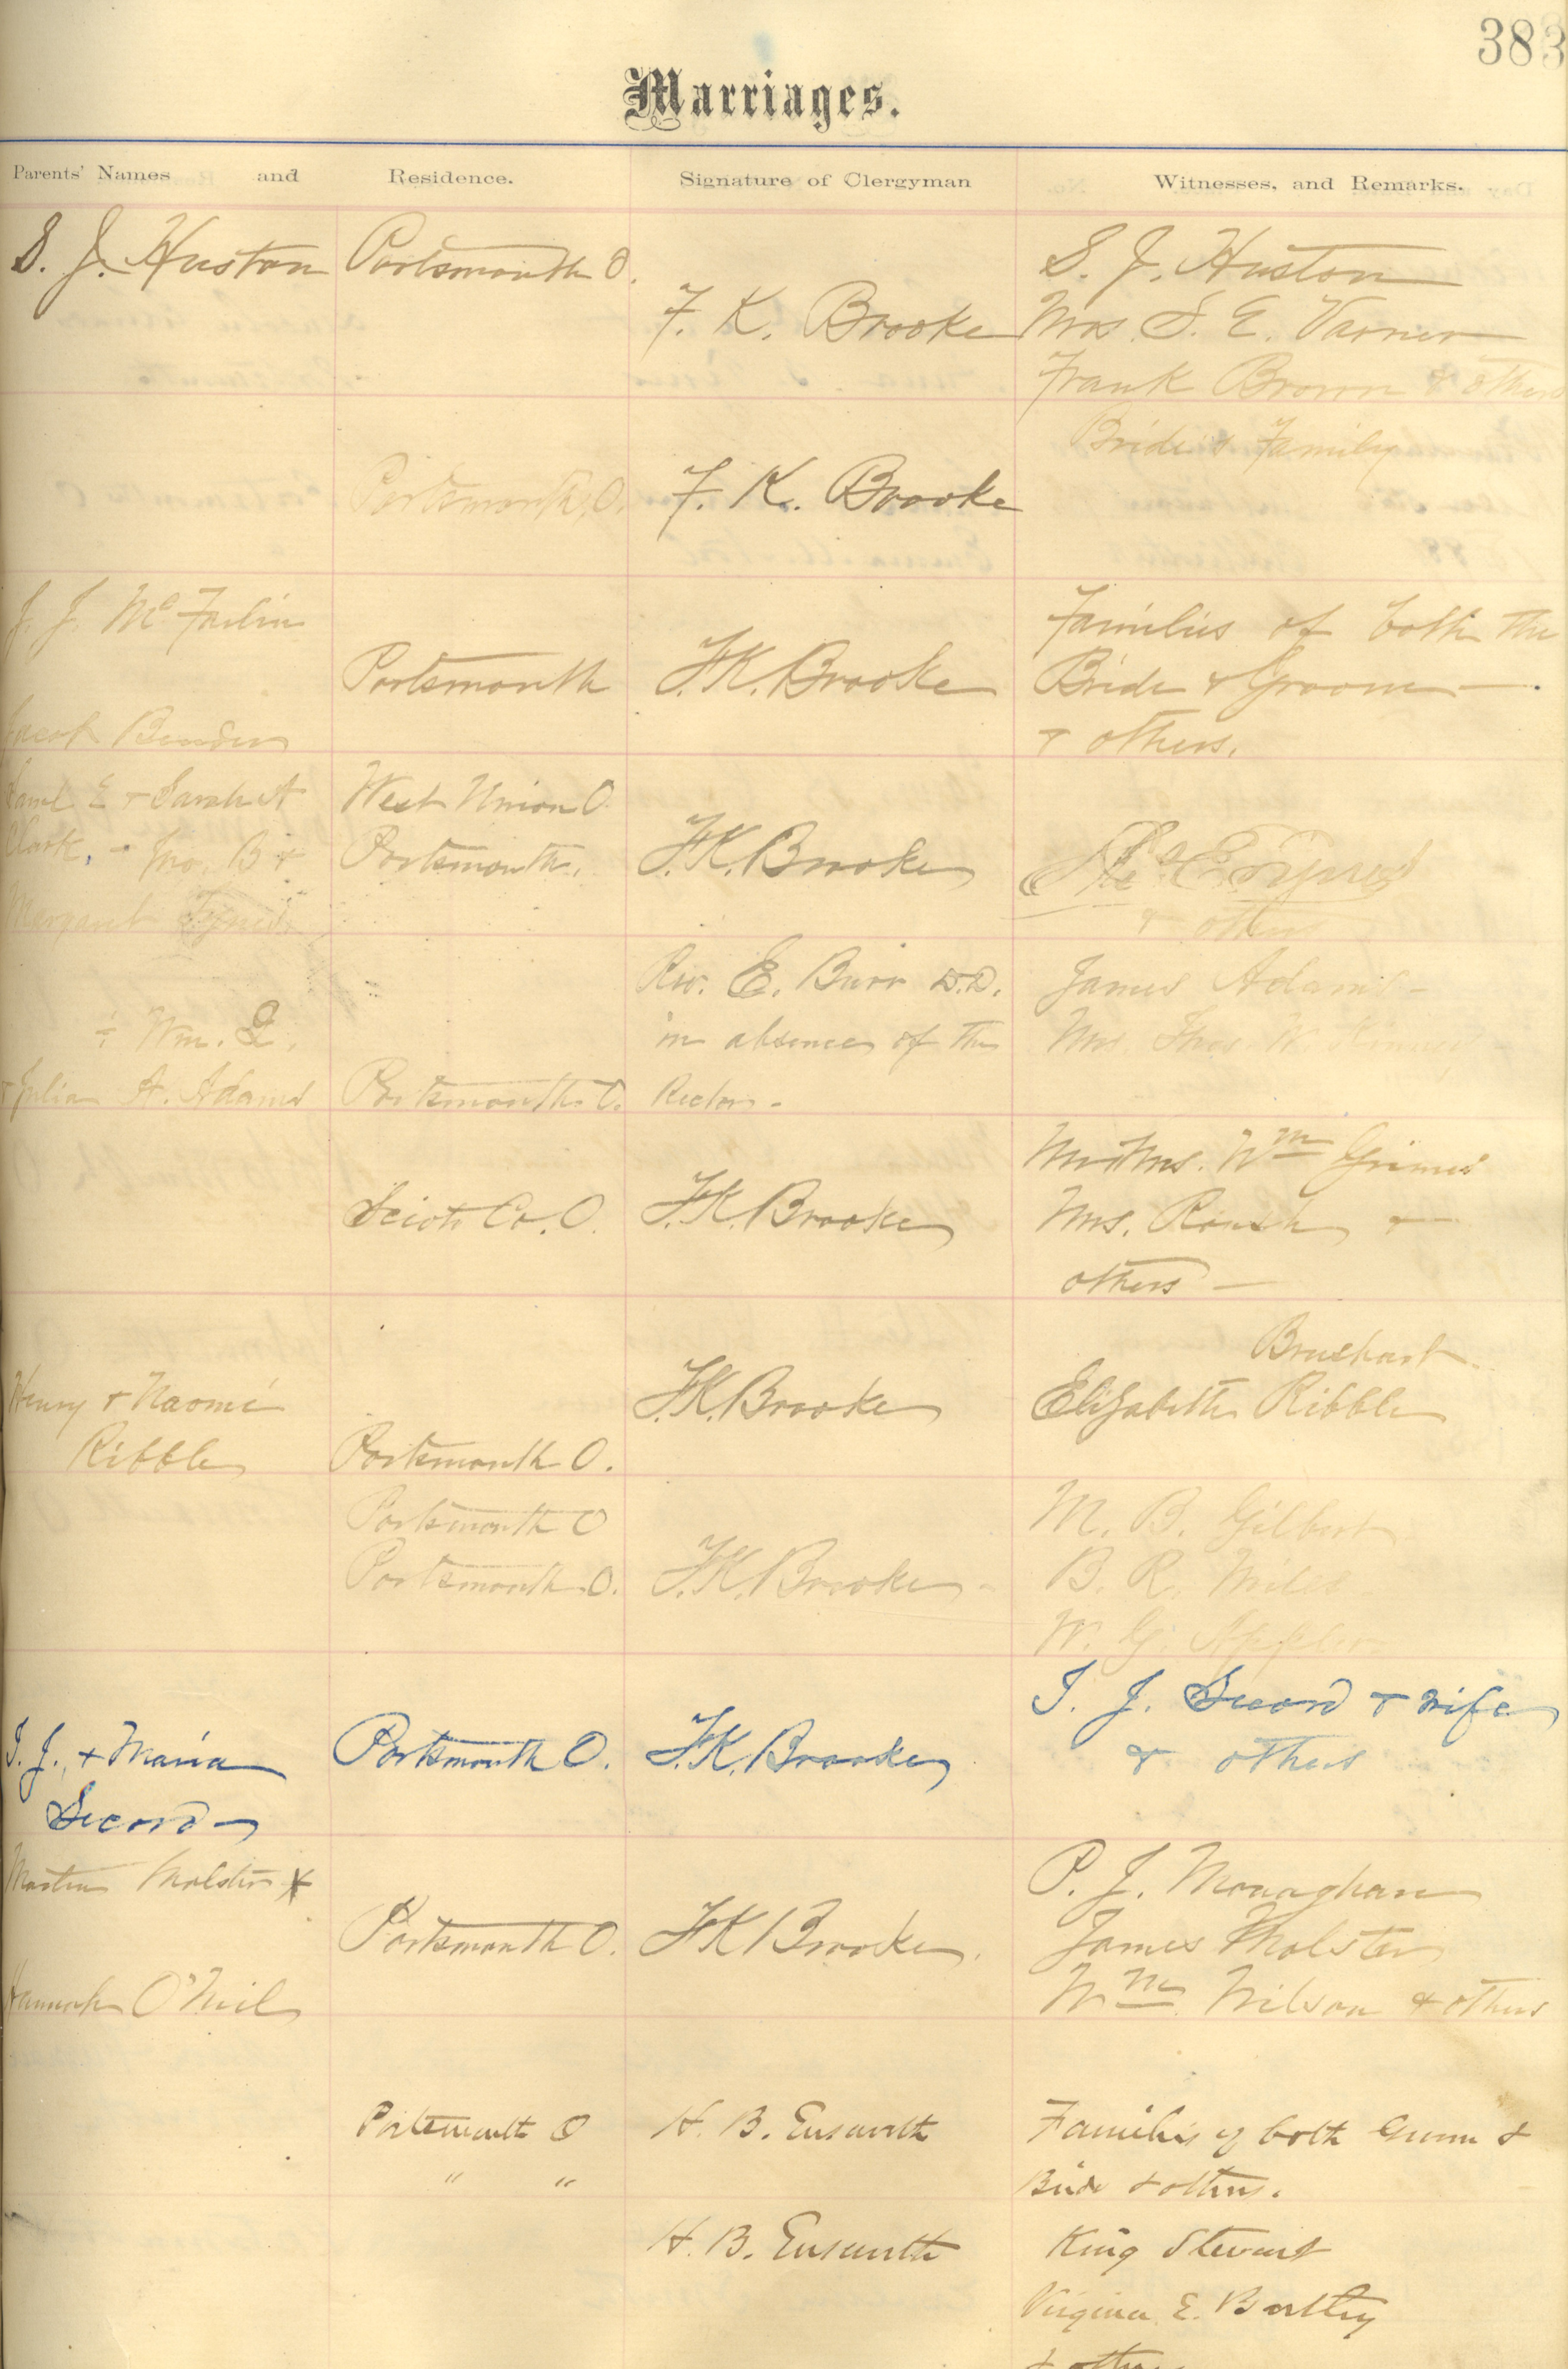 383
Marriages.
Parents' Names and Residence. Signature of Clergyman Witnesses, and Remarks.
S. J. Huston Portsmouth O. F. K. Brooke S. J. Huston
Mrs. S. E. Varner
Frank Brown & others
Portsmouth, O. F. K. Brooke Bride's Family
J. J. Mc Farlin
Jacob Bender
Portsmouth F. K. Brooke Families of both the
Bride & Groom —.
& others.
Saml E & Sarah A
Clark, - Jno. B &
Margaret
West Union O.
Portsmouth. F. K. Brooke
& others
÷ Wm. J.
& Julia A. Adams Portsmouth. O.
Rev. E. Burr D.D.
in absence of the
Rector. -
James Adams -
Mrs. Thos. W.
Scioto Co. O. F. K. Brooke
Mr & Mrs. Wm Grimes
Mrs. Roush, &
others —
Henry & Naomi
Ribble Portsmouth O. F. K. Brooke
Brushart
Elizabeth Ribble
Portsmouth O
Portsmouth. O. F. K. Brooke -
M. B. Gilbert
B. R. Miles
W. G. Appler
I. J. & Maria
Secord Portsmouth O. F. K. Brooke
I. J. Secord & wife
& others
Martin Molster X
Hannah O'Neil
Portsmouth O. F. K. Brooke.
P. J. Monaghan
James Molster
Wm. Wilson & others
Portsmouth O H. B. Ensworth Families of both Groom &
" " Bride & others.
H. B. Ensworth King Stewart
Virginia E. Bartley
& others